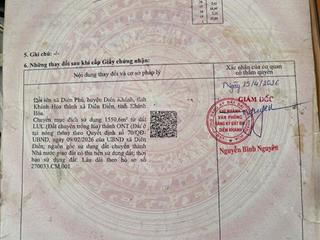 5. Ghi chú: -/-
6. Những thay đổi sau khi cấp Giấy chứng nhận:
Nội dung thay đổi và cơ sở pháp lý
Xác nhận của cơ quan
có thẩm quyền
Đổi tên xã Diên Phú, huyện Diên Khánh, tỉnh
Khánh Hòa thành xã Diên Điền, tỉnh Khánh
Hòa.
Chuyển mục đích sử dụng 1550.6m² từ đất
LUC (Đất chuyên trồng lúa) thành ONT (Đất ở
tại nông thôn) theo Quyết định số 70/QĐ-
UBND, ngày 09/02/2026 của UBND xã Diên
Điền; nguồn gốc sử dụng đất chuyển thành
Nhà nước giao đất có thu tiền sử dụng đất; thời
hạn sử dụng đất: Lâu dài theo hồ sơ số
270033.CM.001
Ngày 15/4/2026
GIÁM ĐỐC
CHI NHÁNH
VĂN PHÒNG
ĐĂNG KÝ ĐẤT ĐAI
DIÊN KHÁNH
Nguyễn Bình Nguyên